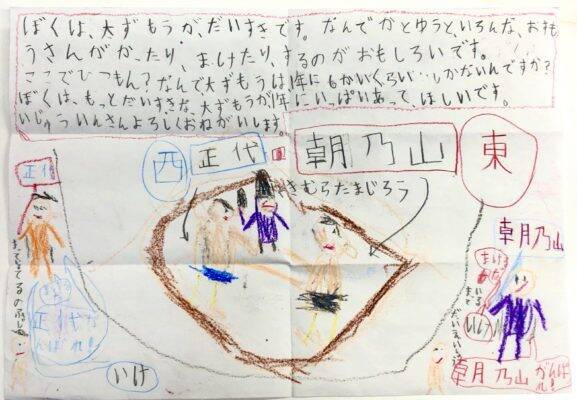 ぼくは、大ずもうが、だいすきです。なんでかとゆうと、いろんな、おすも
うさんがかったり、まけたり、するのがおもしろいです。
ここでひつもん?なんで大ずもうは1年に6かいくらいしかないんですか?
ぼくは、もっとだいすきな、大ずもうが1年にいっぱいあって、ほしいです。
いじゅういんさんよろしくおねがいします。
東
朝乃山
正代
西
きむらたまじろう
正代
朝乃山
正代が
んばれ!
いけ
いけ
朝乃山がんば
れ!